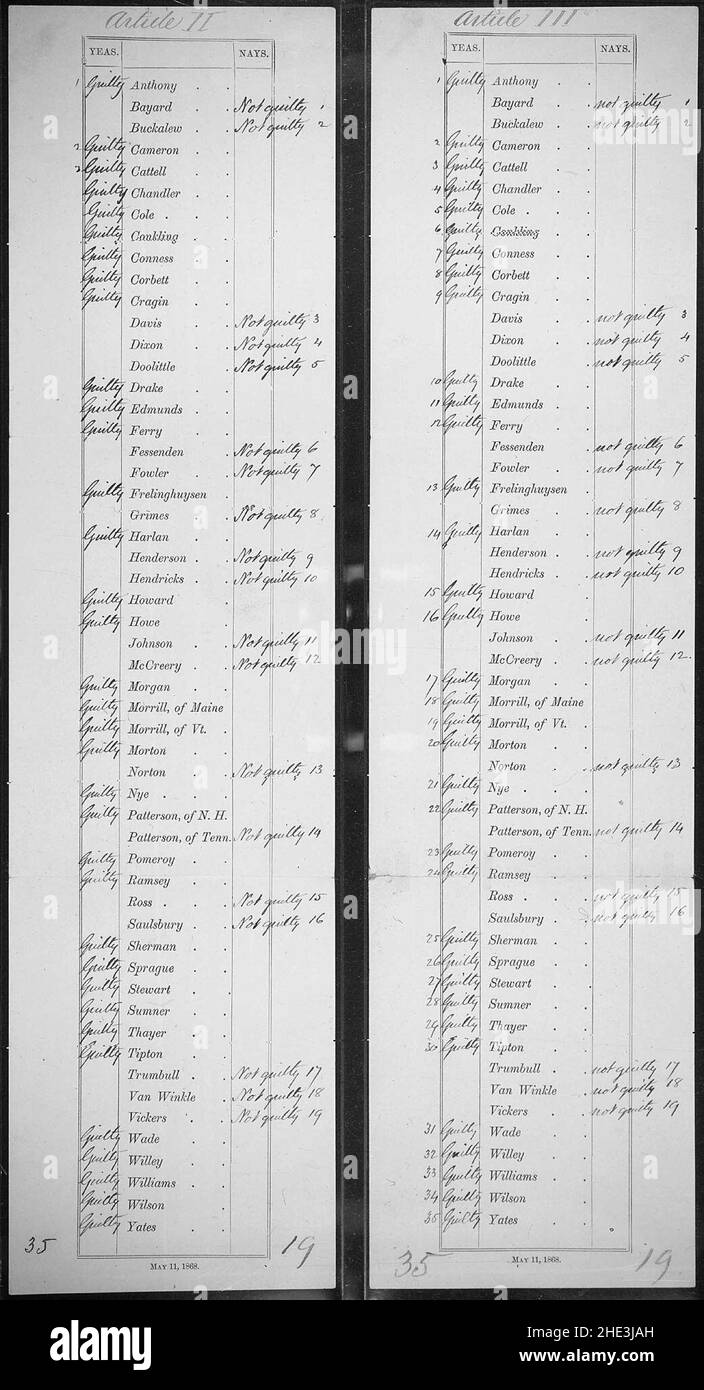 Article II
YEAS. NAYS.
1 Guilty Anthony . .
Bayard . Not guilty 1
Buckalew . . Not guilty 2
2 Guilty Cameron . .
3 Guilty Cattell . .
Guilty Chandler . .
Guilty Cole . . .
Guilty Conkling . .
Guilty Conness . .
Guilty Corbett . .
Guilty Cragin . .
Davis . . Not guilty 3
Dixon . . Not guilty 4
Doolittle . . Not guilty 5
Guilty Drake . .
Guilty Edmunds . .
Guilty Ferry . .
Fessenden . Not guilty 6
Fowler . . Not guilty 7
Guilty Frelinghuysen .
Grimes . . Not guilty 8
Guilty Harlan . .
Henderson . . Not guilty 9
Hendricks . . Not guilty 10
Guilty Howard .
Guilty Howe . .
Johnson . . Not guilty 11
McCreery . . Not guilty 12
Guilty Morgan . .
Guilty Morrill, of Maine
Guilty Morrill, of Vt. .
Guilty Morton . .
Norton . . Not guilty 13
Guilty Nye . . .
Guilty Patterson, of N. H.
Patterson, of Tenn. Not guilty 14
Guilty Pomeroy . .
Guilty Ramsey . .
Ross . . . Not guilty 15
Saulsbury . . Not guilty 16
Guilty Sherman . .
Guilty Sprague . .
Guilty Stewart . .
Guilty Sumner . .
Guilty Thayer . .
Guilty Tipton . .
Trumbull . . Not guilty 17
Van Winkle . Not guilty 18
Vickers . . Not guilty 19
Guilty Wade . .
Guilty Willey . .
Guilty Williams . .
Guilty Wilson . .
Guilty Yates . .
35 19
MAY 11, 1868.
Article III
YEAS. NAYS.
1 Guilty Anthony . .
Bayard . . not guilty 1
Buckalew . . not guilty 2
2 Guilty Cameron . .
3 Guilty Cattell . .
4 Guilty Chandler . .
5 Guilty Cole . . .
6 Guilty Conkling . .
7 Guilty Conness . .
8 Guilty Corbett . .
9 Guilty Cragin . .
Davis . . not guilty 3
Dixon . . not guilty 4
Doolittle . . not guilty 5
10 Guilty Drake . .
11 Guilty Edmunds . .
12 Guilty Ferry . .
Fessenden . not guilty 6
Fowler . . not guilty 7
13 Guilty Frelinghuysen .
Grimes . . not guilty 8
14 Guilty Harlan . .
Henderson . . not guilty 9
Hendricks . . not guilty 10
15 Guilty Howard .
16 Guilty Howe . .
Johnson . . not guilty 11
McCreery . . not guilty 12.
17 Guilty Morgan . .
18 Guilty Morrill, of Maine
19 Guilty Morrill, of Vt. .
20 Guilty Morton . .
Norton . . not guilty 13
21 Guilty Nye . . .
22 Guilty Patterson, of N. H.
Patterson, of Tenn. not guilty 14
23 Guilty Pomeroy . .
24 Guilty Ramsey . .
Ross . . . not guilty 15
Saulsbury . . not guilty 16
25 Guilty Sherman . .
26 Guilty Sprague . .
27 Guilty Stewart . .
28 Guilty Sumner . .
29 Guilty Thayer . .
30 Guilty Tipton . .
Trumbull . . not guilty 17
Van Winkle . not guilty 18
Vickers . . not guilty 19
31 Guilty Wade . .
32 Guilty Willey . .
33 Guilty Williams . .
34 Guilty Wilson . .
35 Guilty Yates . .
35 19
MAY 11, 1868.
alamy
Image ID: 2HE3JAH
www.alamy.com